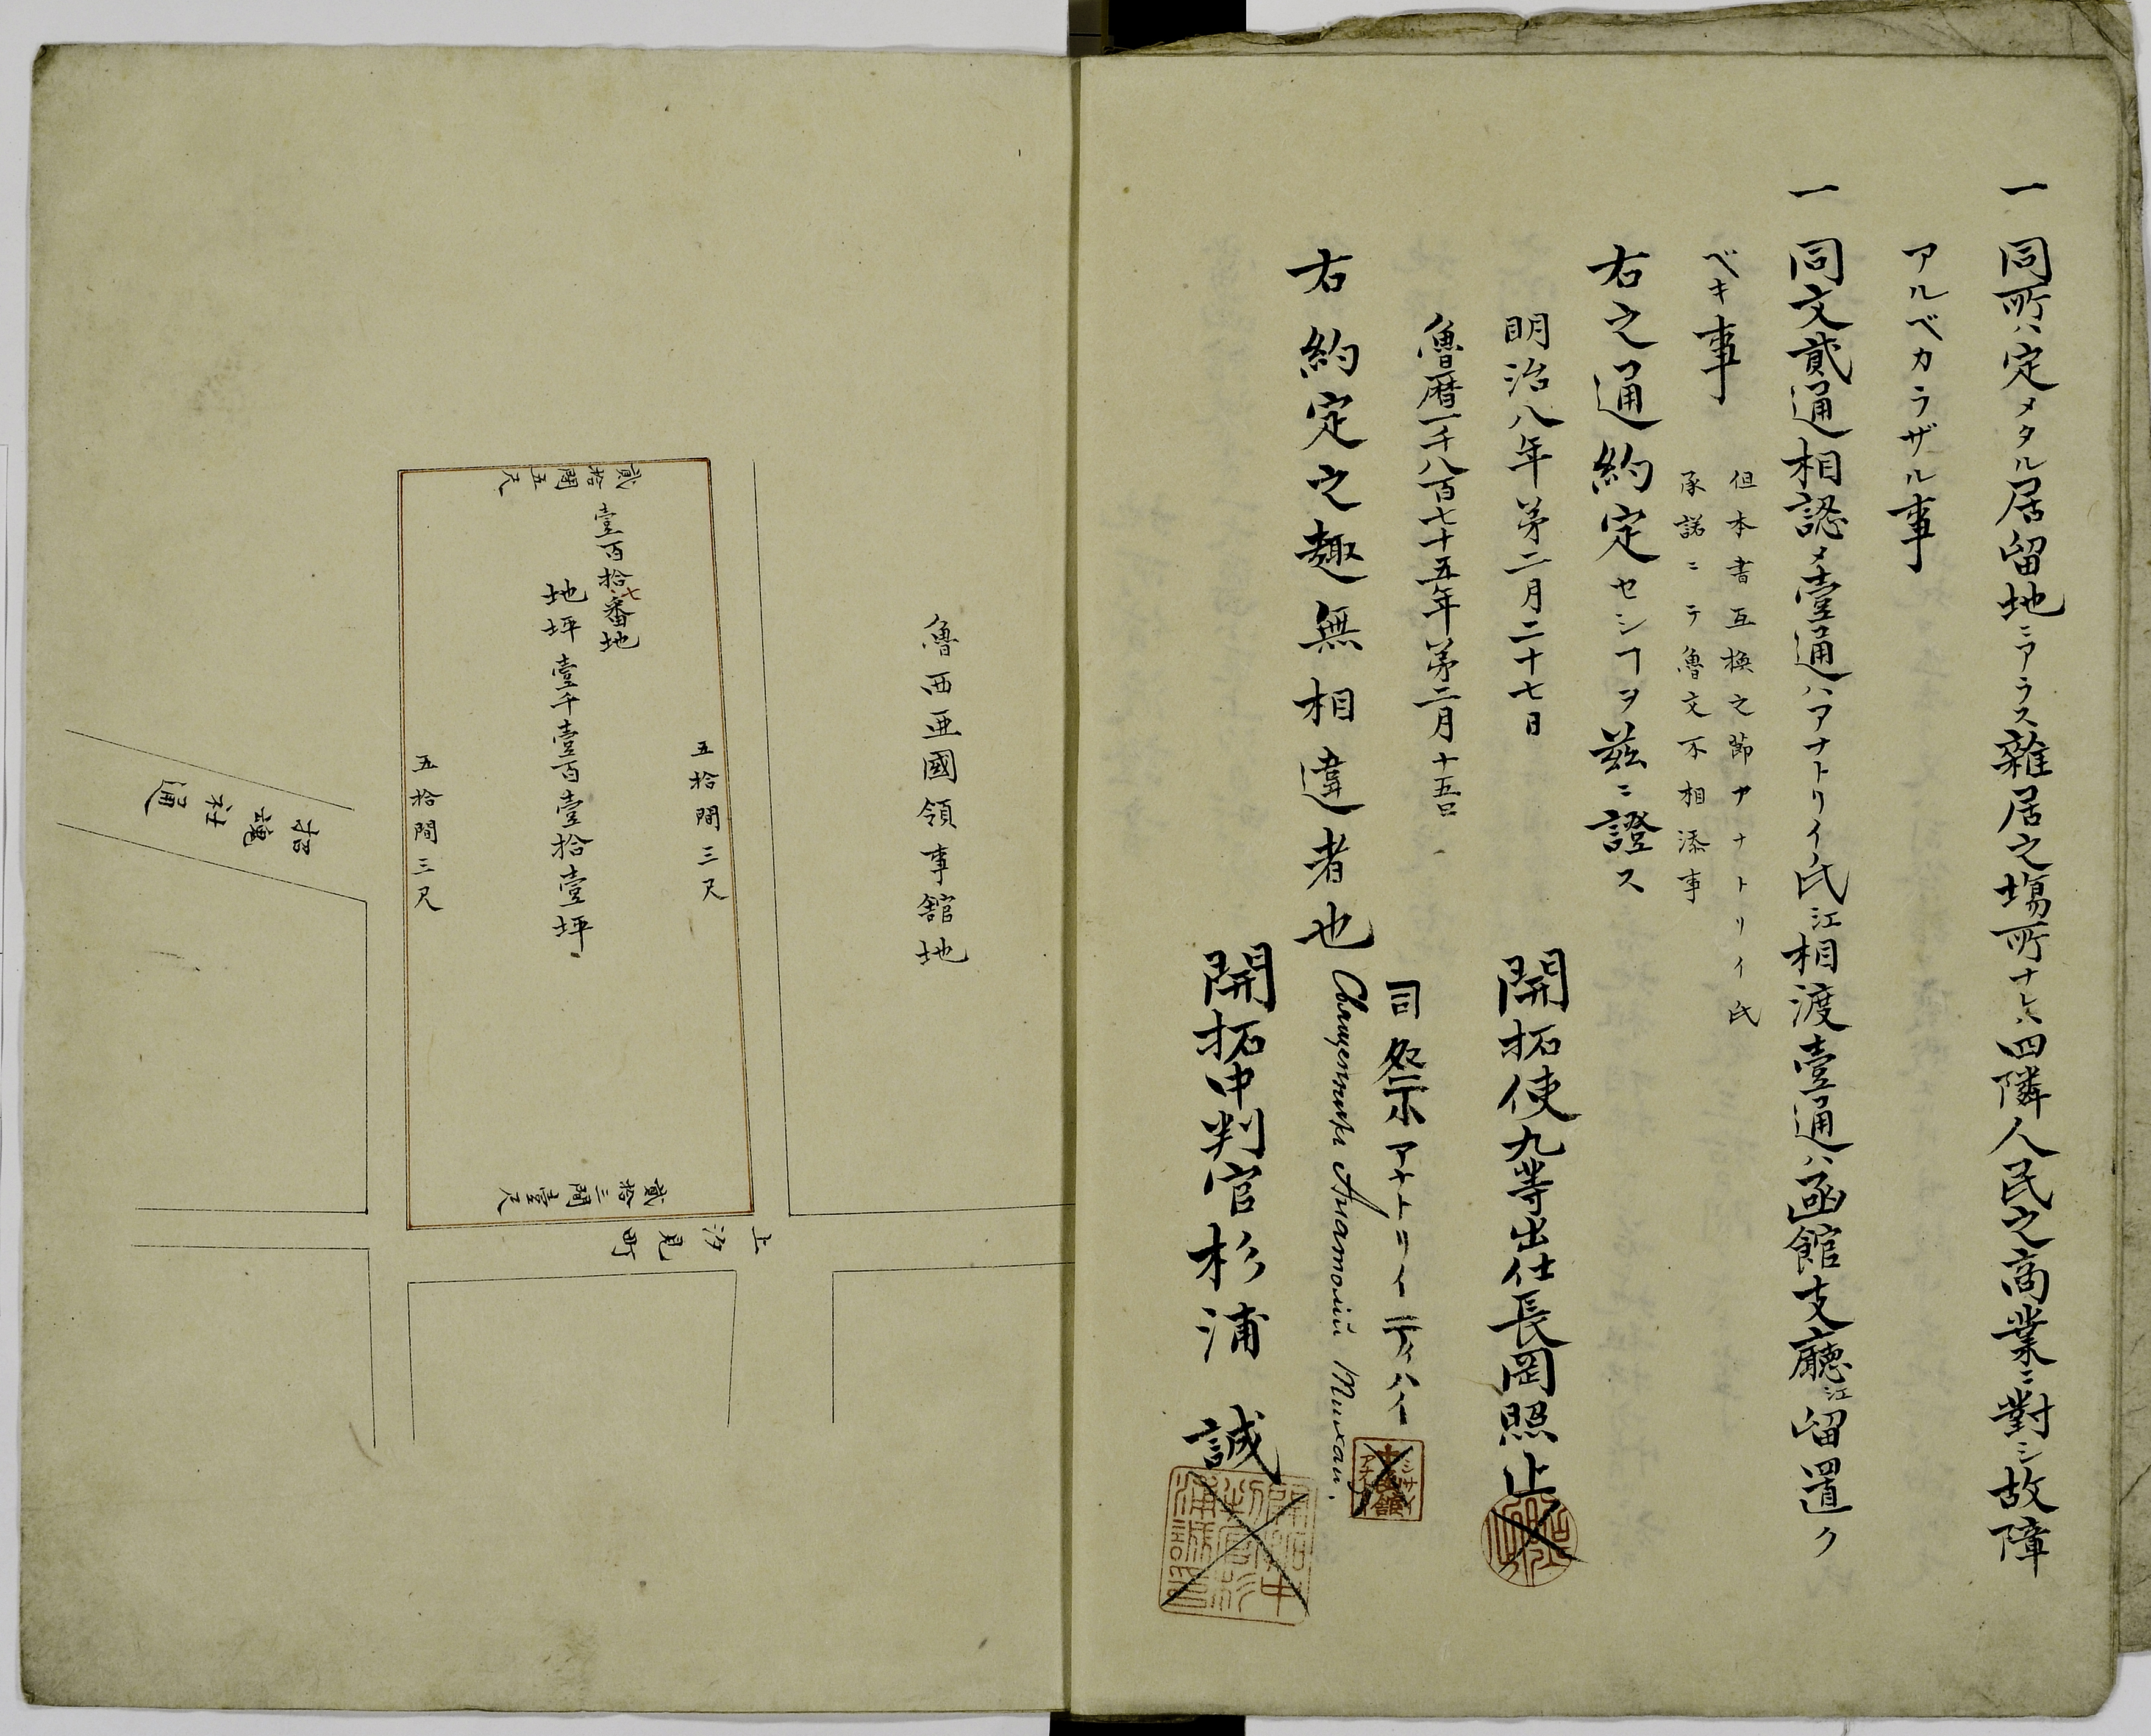 一 同所ハ定メタル居留地ニアラス雑居之場所ナレハ四隣人民之商業ニ對シ故障
アルベカラザル事
一 同文貳通相認メ壹通ハアナトリイ氏江相渡壹通ハ函館支廳江留置ク
ベキ事
但本書互換之節アナトリイ氏
承諾ニテ魯文不相添事
右之通約定セシヿヲ茲ニ證ス
明治八年第二月二十七日
魯暦一千八百七十五年第二月十五日
開拓使九等出仕長岡照止
司祭アナトリイ
右約定之趣無相違者也
開拓中判官杉浦誠
魯西亜國領事舘地
貳拾間五尺
壹百拾七番地
地坪壹千壹百壹拾壹坪
五拾間三尺
五拾間三尺
貳拾三間壹尺
上汐見町
招魂社通